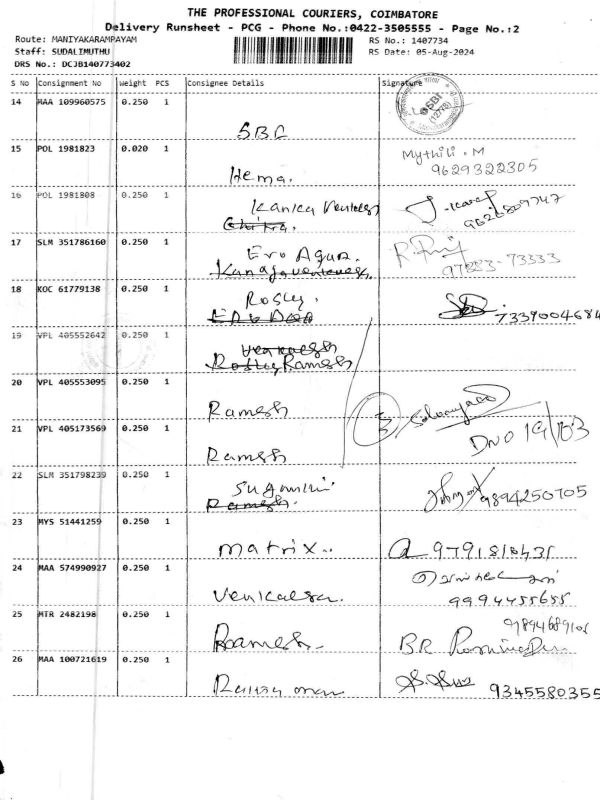 THE PROFESSIONAL COURIERS, COIMBATORE
Delivery Runsheet - PCG - Phone No.:0422-3505555 - Page No.:2
Route: MANIYAKARAMPAYAM
RS No.: 1407734
Staff: SUDALIMUTHU
RS Date: 05-Aug-2024
DRS No.: DCJB140773402
S No Consignment No Weight PCS Consignee Details Signature
14 MAA 109960575 0.250 1
SBI (12778)
SBC
15 POL 1981823 0.020 1
Mythili . M
Hema. 9629322305
16 POL 1981808 0.250 1
Kanica Venkates
Chitra.
17 SLM 351786160 0.250 1
Ero Agua.
97883-73333
18 KOC 61779138 0.250 1
Rosly.
7339004684
19 VPL 405552642 0.250 1
Venkaesh
Rosly Ramesh
20 VPL 405553095 0.250 1
Ramesh
21 VPL 405173569 0.250 1
DNO 19/103
Ramesh
22 SLM 351798239 0.250 1
9894250705
Ramesh.
23 MYS 51441259 0.250 1
matrix..
24 MAA 574990927 0.250 1
Venkaesa. 9994455655
25 MTR 2482198 0.250 1
Ramesh. B.R
26 MAA 100721619 0.250 1
9345580355